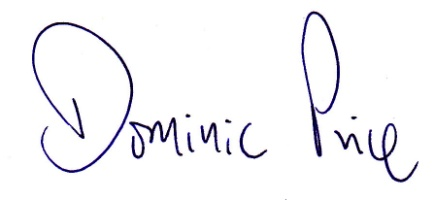 Dominic Price